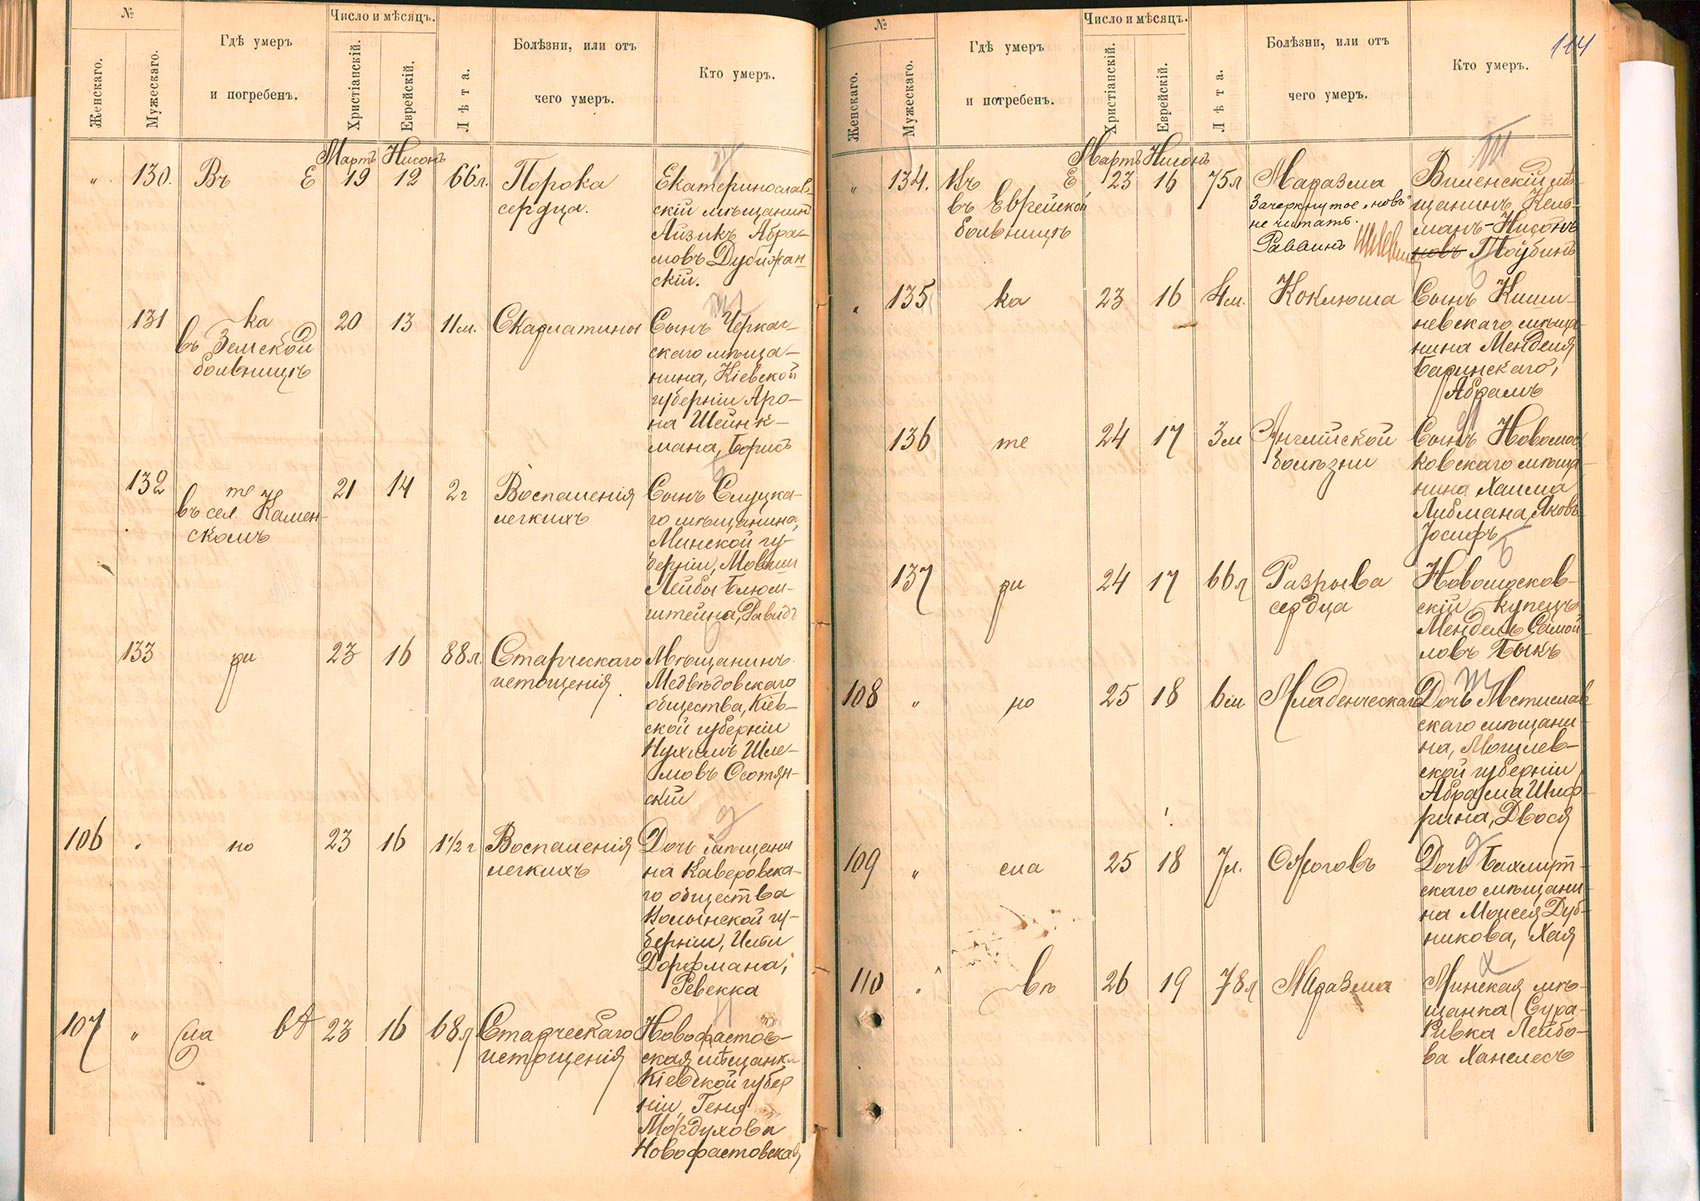 №
Женскаго.
Мужескаго.
Гдѣ умеръ
и погребенъ.
Число и мѣсяцъ.
Христіанскій.
Еврейскій.
Лѣта.
Болѣзни, или отъ
чего умеръ.
Кто умеръ.
Мартъ Нисонъ
" 130. Въ Е 19 12 66л. Порока
сердца.
Екатеринослав-
скій мѣщанинъ
Айзикъ Абра-
мовъ Дубижан-
скій.
131 ка
въ Земской
больницѣ
20 13 11м. Скарлатины
Сынъ Черкас-
скаго мѣща-
нина, Кіевской
губерніи Аро-
на Шейнк-
мана, Борисъ
132 те
въ сел. Камен-
скомъ
21 14 2г Воспаленія
легкихъ
Сынъ Слуцка-
го мѣщанина,
Минской гу-
берніи, Мовши
Лейбы Блюм-
штейна, Давидъ
133 ри 23 16 88л. Старческаго
истощенія.
Мѣщанинъ
Медвѣдовскаго
общества, Кіев-
ской губерніи
Нухимъ Шле-
мовъ Осотян-
скій
106 " но 23 16 1½ г Воспаленія
легкихъ
Дочь мѣщани
на Каверовска-
го общества
Волынской гу-
берніи,
Дорфмана,
Ревекка
107 " сла 23 16 68л Старческаго
истощенія
Новофастов-
ская мѣщанка
Кіевской губер
ніи, Геня
Мордухова
Новофастовская
114
№
Женскаго.
Мужескаго.
Гдѣ умеръ
и погребенъ.
Число и мѣсяцъ.
Христіанскій.
Еврейскій.
Лѣта.
Болѣзни, или отъ
чего умеръ.
Кто умеръ.
Мартъ Нисонъ
Ш
" 134. въ Е 23 16 75л Маразма
въ Еврейской
больницѣ
Зачеркнутое "новъ"
не читать.
Раввинъ
Виленскій мѣ-
щанинъ, Кель-
манъ-Нисонъ
новъ
" 135 ка 23 16 4м. Коклюша
Сынъ Киши-
невскаго мѣща-
нина Менделя
Баринскаго,
Абрамъ
136 те 24 17 3м Англійской
болѣзни
Сынъ Новомос
ковскаго мѣща-
нина Хаима
Либмана, Яковъ
Іосифъ
137 ри 24 17 66л Разрыва
сердца
Б
Новомосков-
скій купецъ
Мендель Самой-
ловъ Быкъ
108 " но 25 18 6м Младенческаго
Дочь Мстислав
скаго мѣщани-
на, Могилев-
ской губерніи
Абрама Шиф-
рина, Двося
109 " сла 25 18 7л. Ожоговъ
Дочь Бахмут-
скаго мѣщани-
на Моисея Дуб-
никова, Хая
110 " въ 26 19 78л Маразма
Минская мѣ-
щанка Сура-
Ривка Лейбо-
ва Ханелесъ